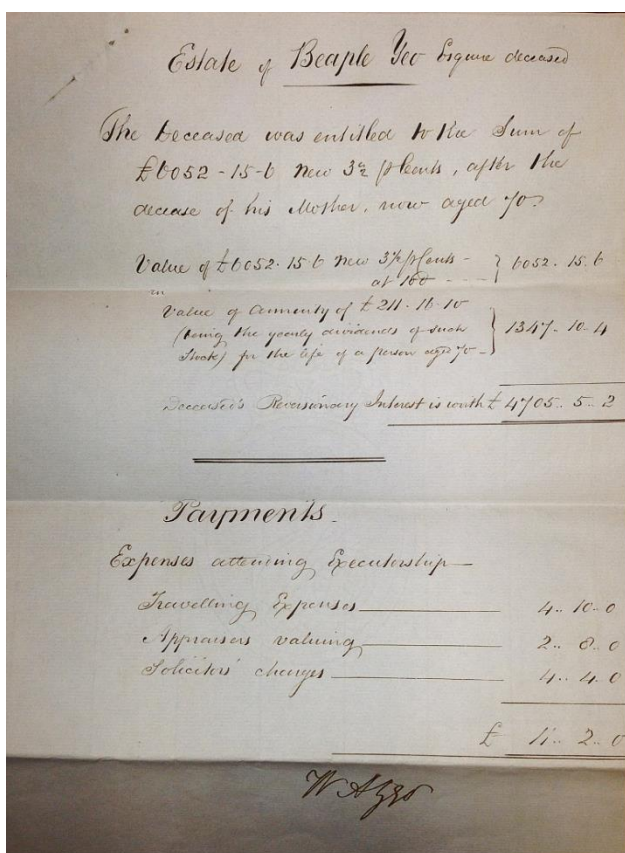 Estate of Beaple Yeo Esquire deceased
The Deceased was entitled to the Sum of
£6052-15-6 New 3½ p Cents, after the
decease of his Mother, now aged 70.
Value of £6052.15.6 New 3½ p Cents -
at 100 - - - } 6052.15.6
Value of Annuity of £211.16.10
(being the yearly dividends of such
Stock) for the life of a person aged 70 - } 1347.10.4
Deceased's Reversionary Interest is worth £ 4705..5..2
Payments.
Expenses attending Executorship—
Travelling Expenses 4..10..0
Appraisers valuing 2..8..0
Solicitors' charges 4..4..0
£ 11..2..0